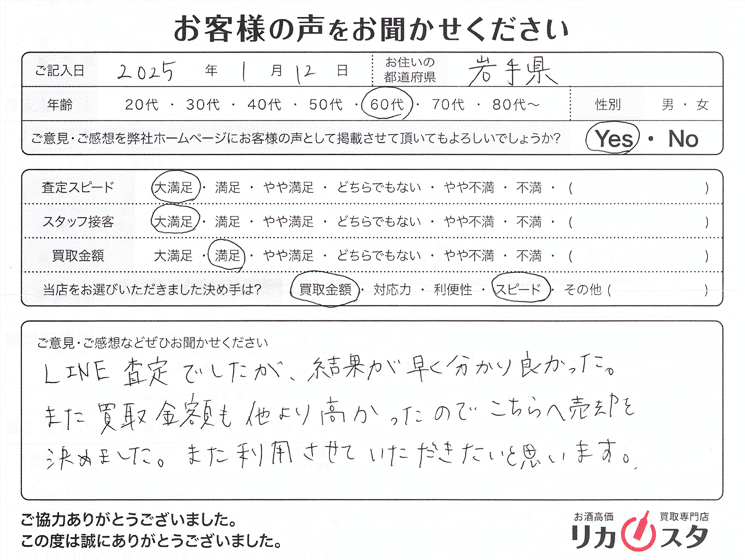 お客様の声をお聞かせください
ご記入日 2025 年 1 月 12 日 お住いの都道府県 岩手県
年齢 20代 ・ 30代 ・ 40代 ・ 50代 ・ 60代 ・ 70代 ・ 80代〜 性別 男 ・ 女
ご意見・ご感想を弊社ホームページにお客様の声として掲載させて頂いてもよろしいでしょうか? Yes ・ No
査定スピード 大満足 ・ 満足 ・ やや満足 ・ どちらでもない ・ やや不満 ・ 不満 ・ ( )
スタッフ接客 大満足 ・ 満足 ・ やや満足 ・ どちらでもない ・ やや不満 ・ 不満 ・ ( )
買取金額 大満足 ・ 満足 ・ やや満足 ・ どちらでもない ・ やや不満 ・ 不満 ・ ( )
当店をお選びいただきました決め手は? 買取金額 ・ 対応力 ・ 利便性 ・ スピード ・ その他 ( )
ご意見・ご感想などぜひお聞かせください
LINE査定でしたが、結果が早く分かり良かった。
また買取金額も他より高かったのでこちらへ売却を
決めました。また利用させていただきたいと思います。
ご協力ありがとうございました。
この度は誠にありがとうございました。
お酒高価 買取専門店
リカスタ